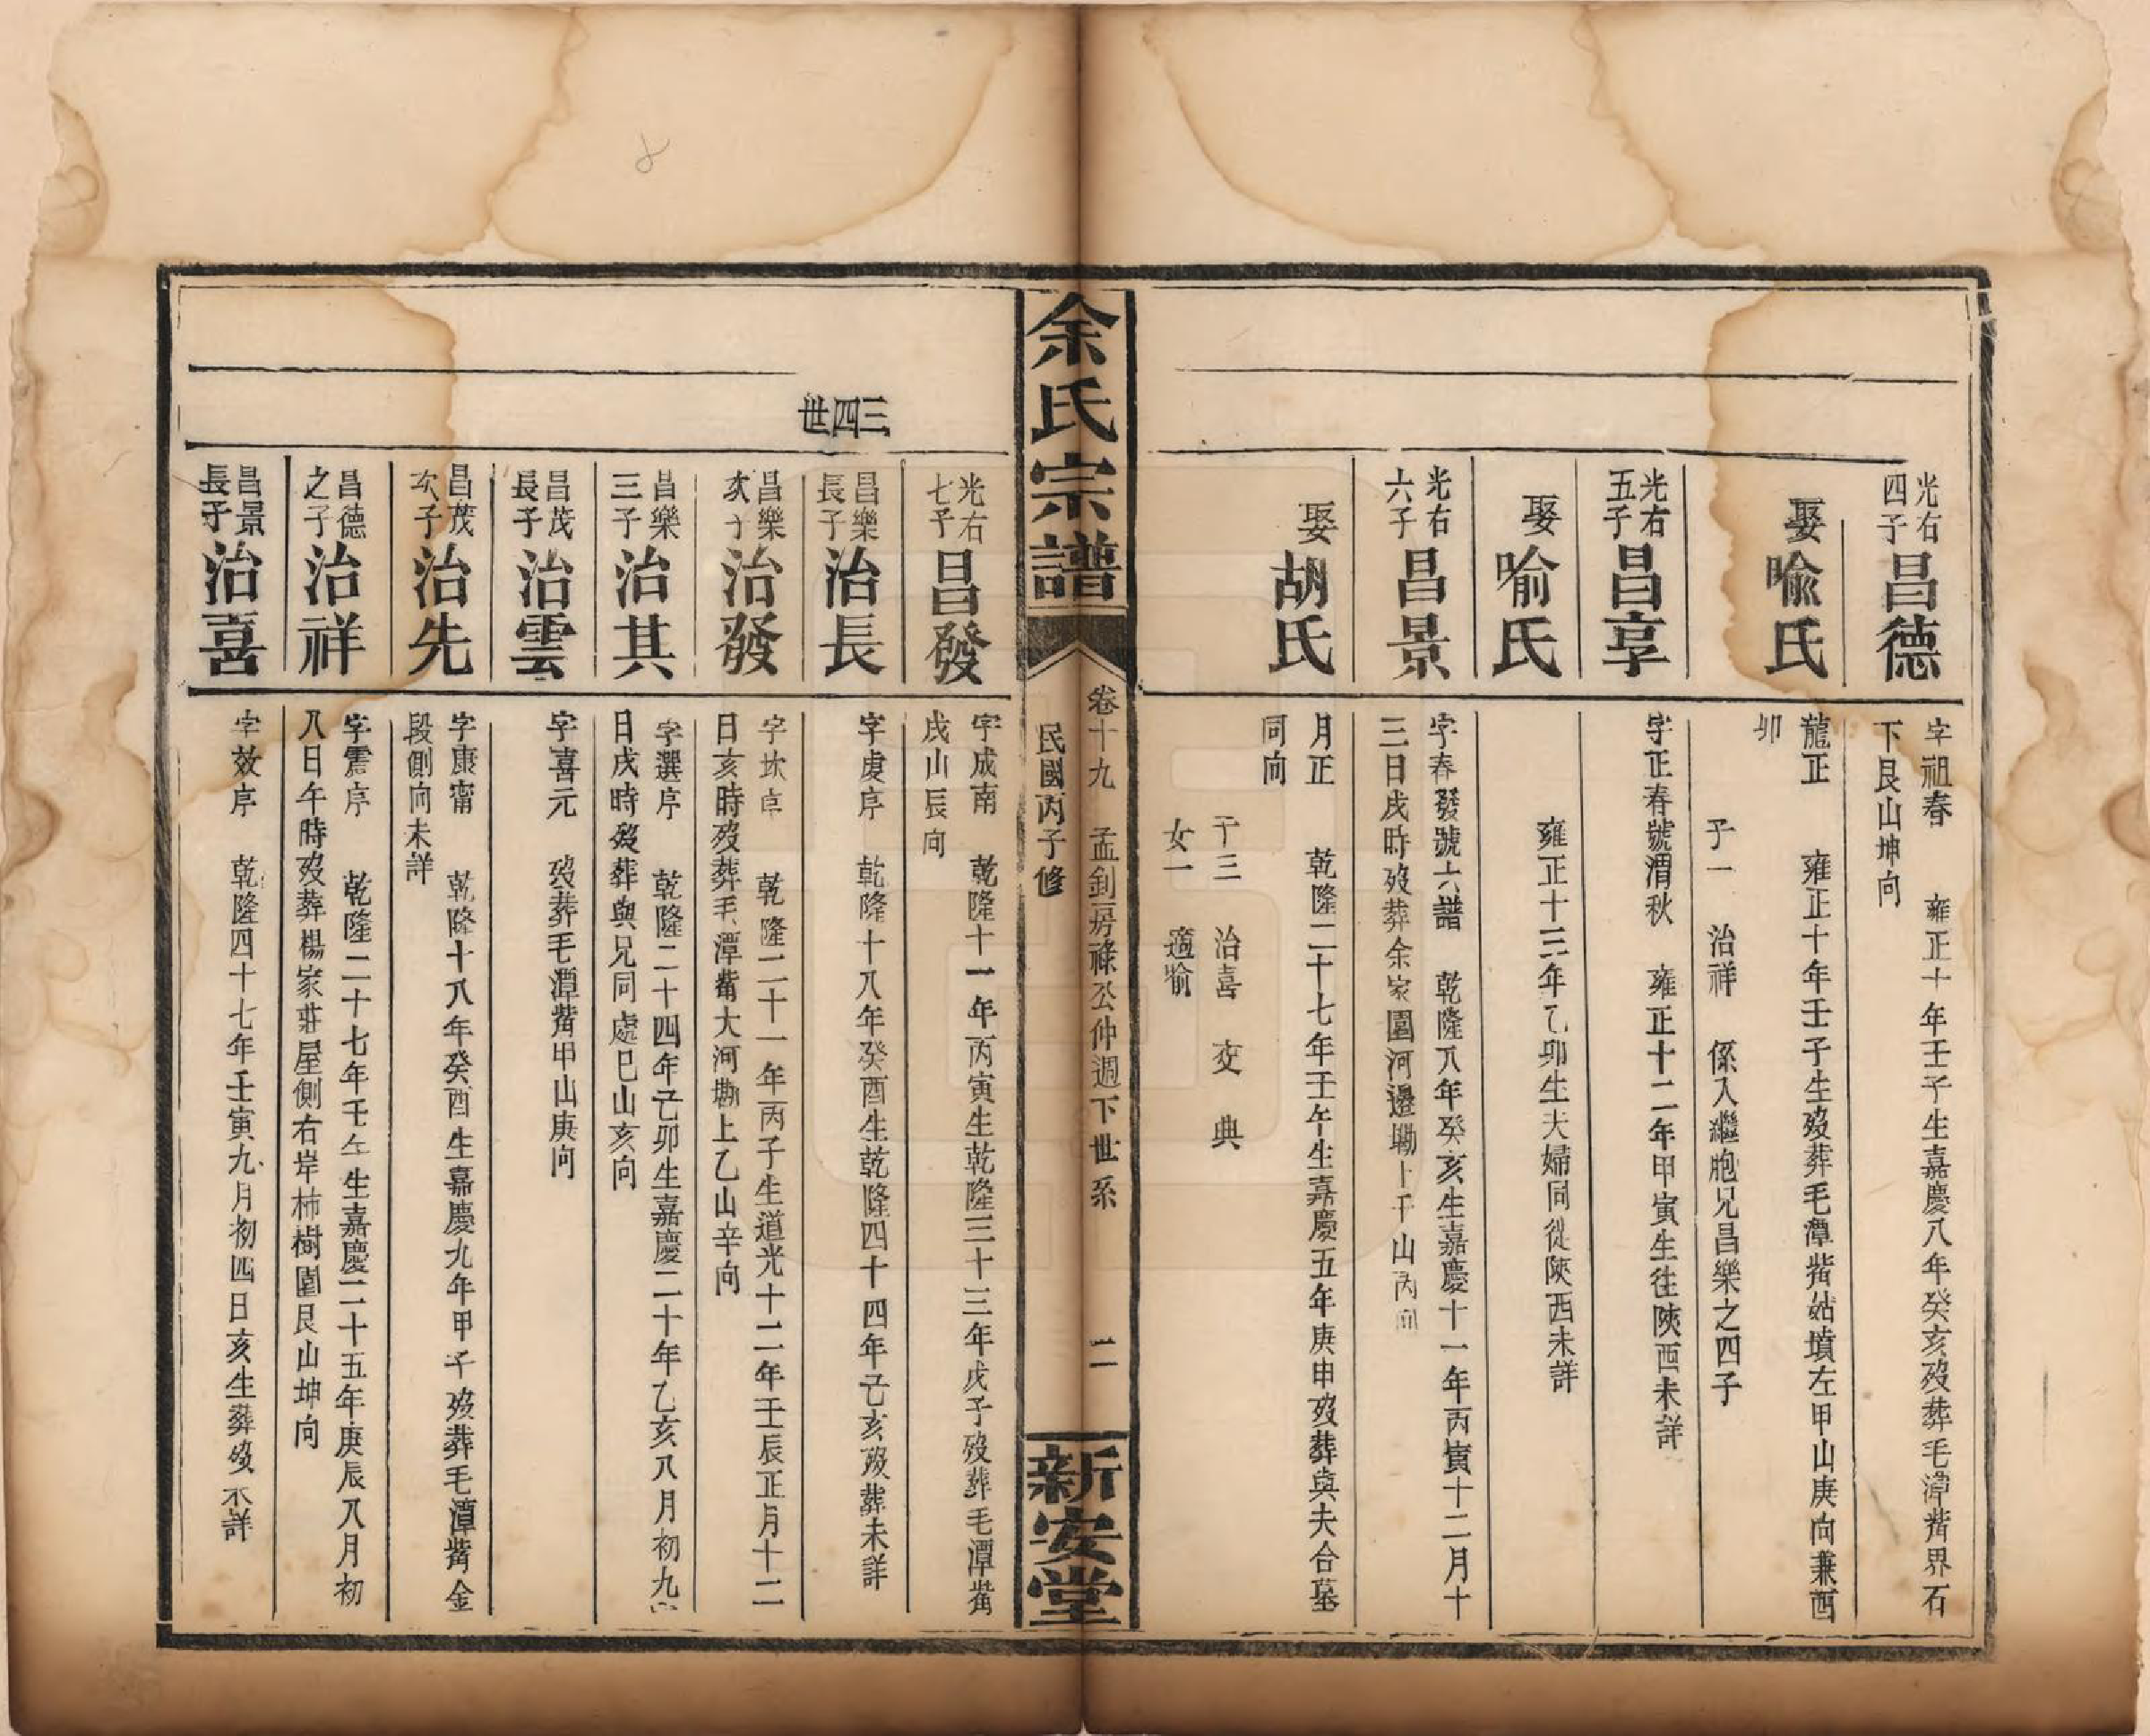 光右
四子
昌德
字祖春　雍正十年壬子生嘉慶八年癸亥歿葬毛潭觜界石
下艮山坤向
娶
喻氏
龍正　雍正十年壬子生歿葬毛潭觜姑墳左甲山庚向兼酉
卯
子一　治祥　係入繼胞兄昌樂之四子
光右
五子
昌享
字正春號渭秋　雍正十二年甲寅生徃陝西未詳
娶
喻氏
雍正十三年乙卯生夫婦同從陝西未詳
光右
六子
昌景
字春發號六譜　乾隆八年癸亥生嘉慶十一年丙寅十二月十
三日戌時歿葬余家園河邊墈上壬山丙向
娶
胡氏
月正　乾隆二十七年壬午生嘉慶五年庚申歿葬與夫合墓
同向
子三　治喜　交　典
女一　適喻
余氏宗譜
卷十九　孟釗房祿公仲週下世系　二
民國丙子修
新安堂
光右
七子
昌發
字成南　乾隆十一年丙寅生乾隆三十三年戊子歿葬毛潭觜
戌山辰向
三四世
昌樂
長子
治長
字虔序　乾隆十八年癸酉生乾隆四十四年己亥歿葬未詳
昌樂
次子
治發
字次序　乾隆二十一年丙子生道光十二年壬辰正月十二
日亥時歿葬毛潭觜大河墈上乙山辛向
昌樂
三子
治其
字選序　乾隆二十四年己卯生嘉慶二十年乙亥八月初九
日戌時歿葬與兄同處巳山亥向
昌茂
長子
治雲
字喜元　歿葬毛潭觜甲山庚向
昌茂
次子
治先
字康甯　乾隆十八年癸酉生嘉慶九年甲子歿葬毛潭觜金
段側向未詳
昌德
之子
治祥
字震序　乾隆二十七年壬午生嘉慶二十五年庚辰八月初
八日午時歿葬楊家莊屋側右岸柿樹園艮山坤向
昌景
長子
治喜
字效序　乾隆四十七年壬寅九月初四日亥生葬歿未詳